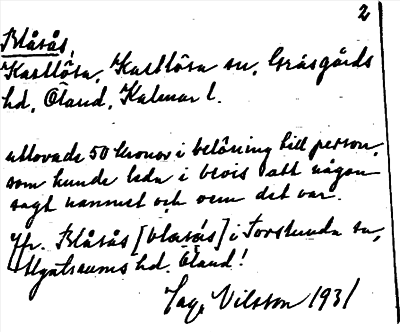 2
Blåsås,
Kastlösa, Kastlösa sn, Gräsgårds
hd, Öland, Kalmar l.
utlovade 50 kronor i belöning till person,
som kunde leda i bevis att någon
sagt namnet och vem det var.
Jfr. Blåsås [blåsås] i Torslunda sn,
Algutsrums hd. Öland!
Nilsson 1931